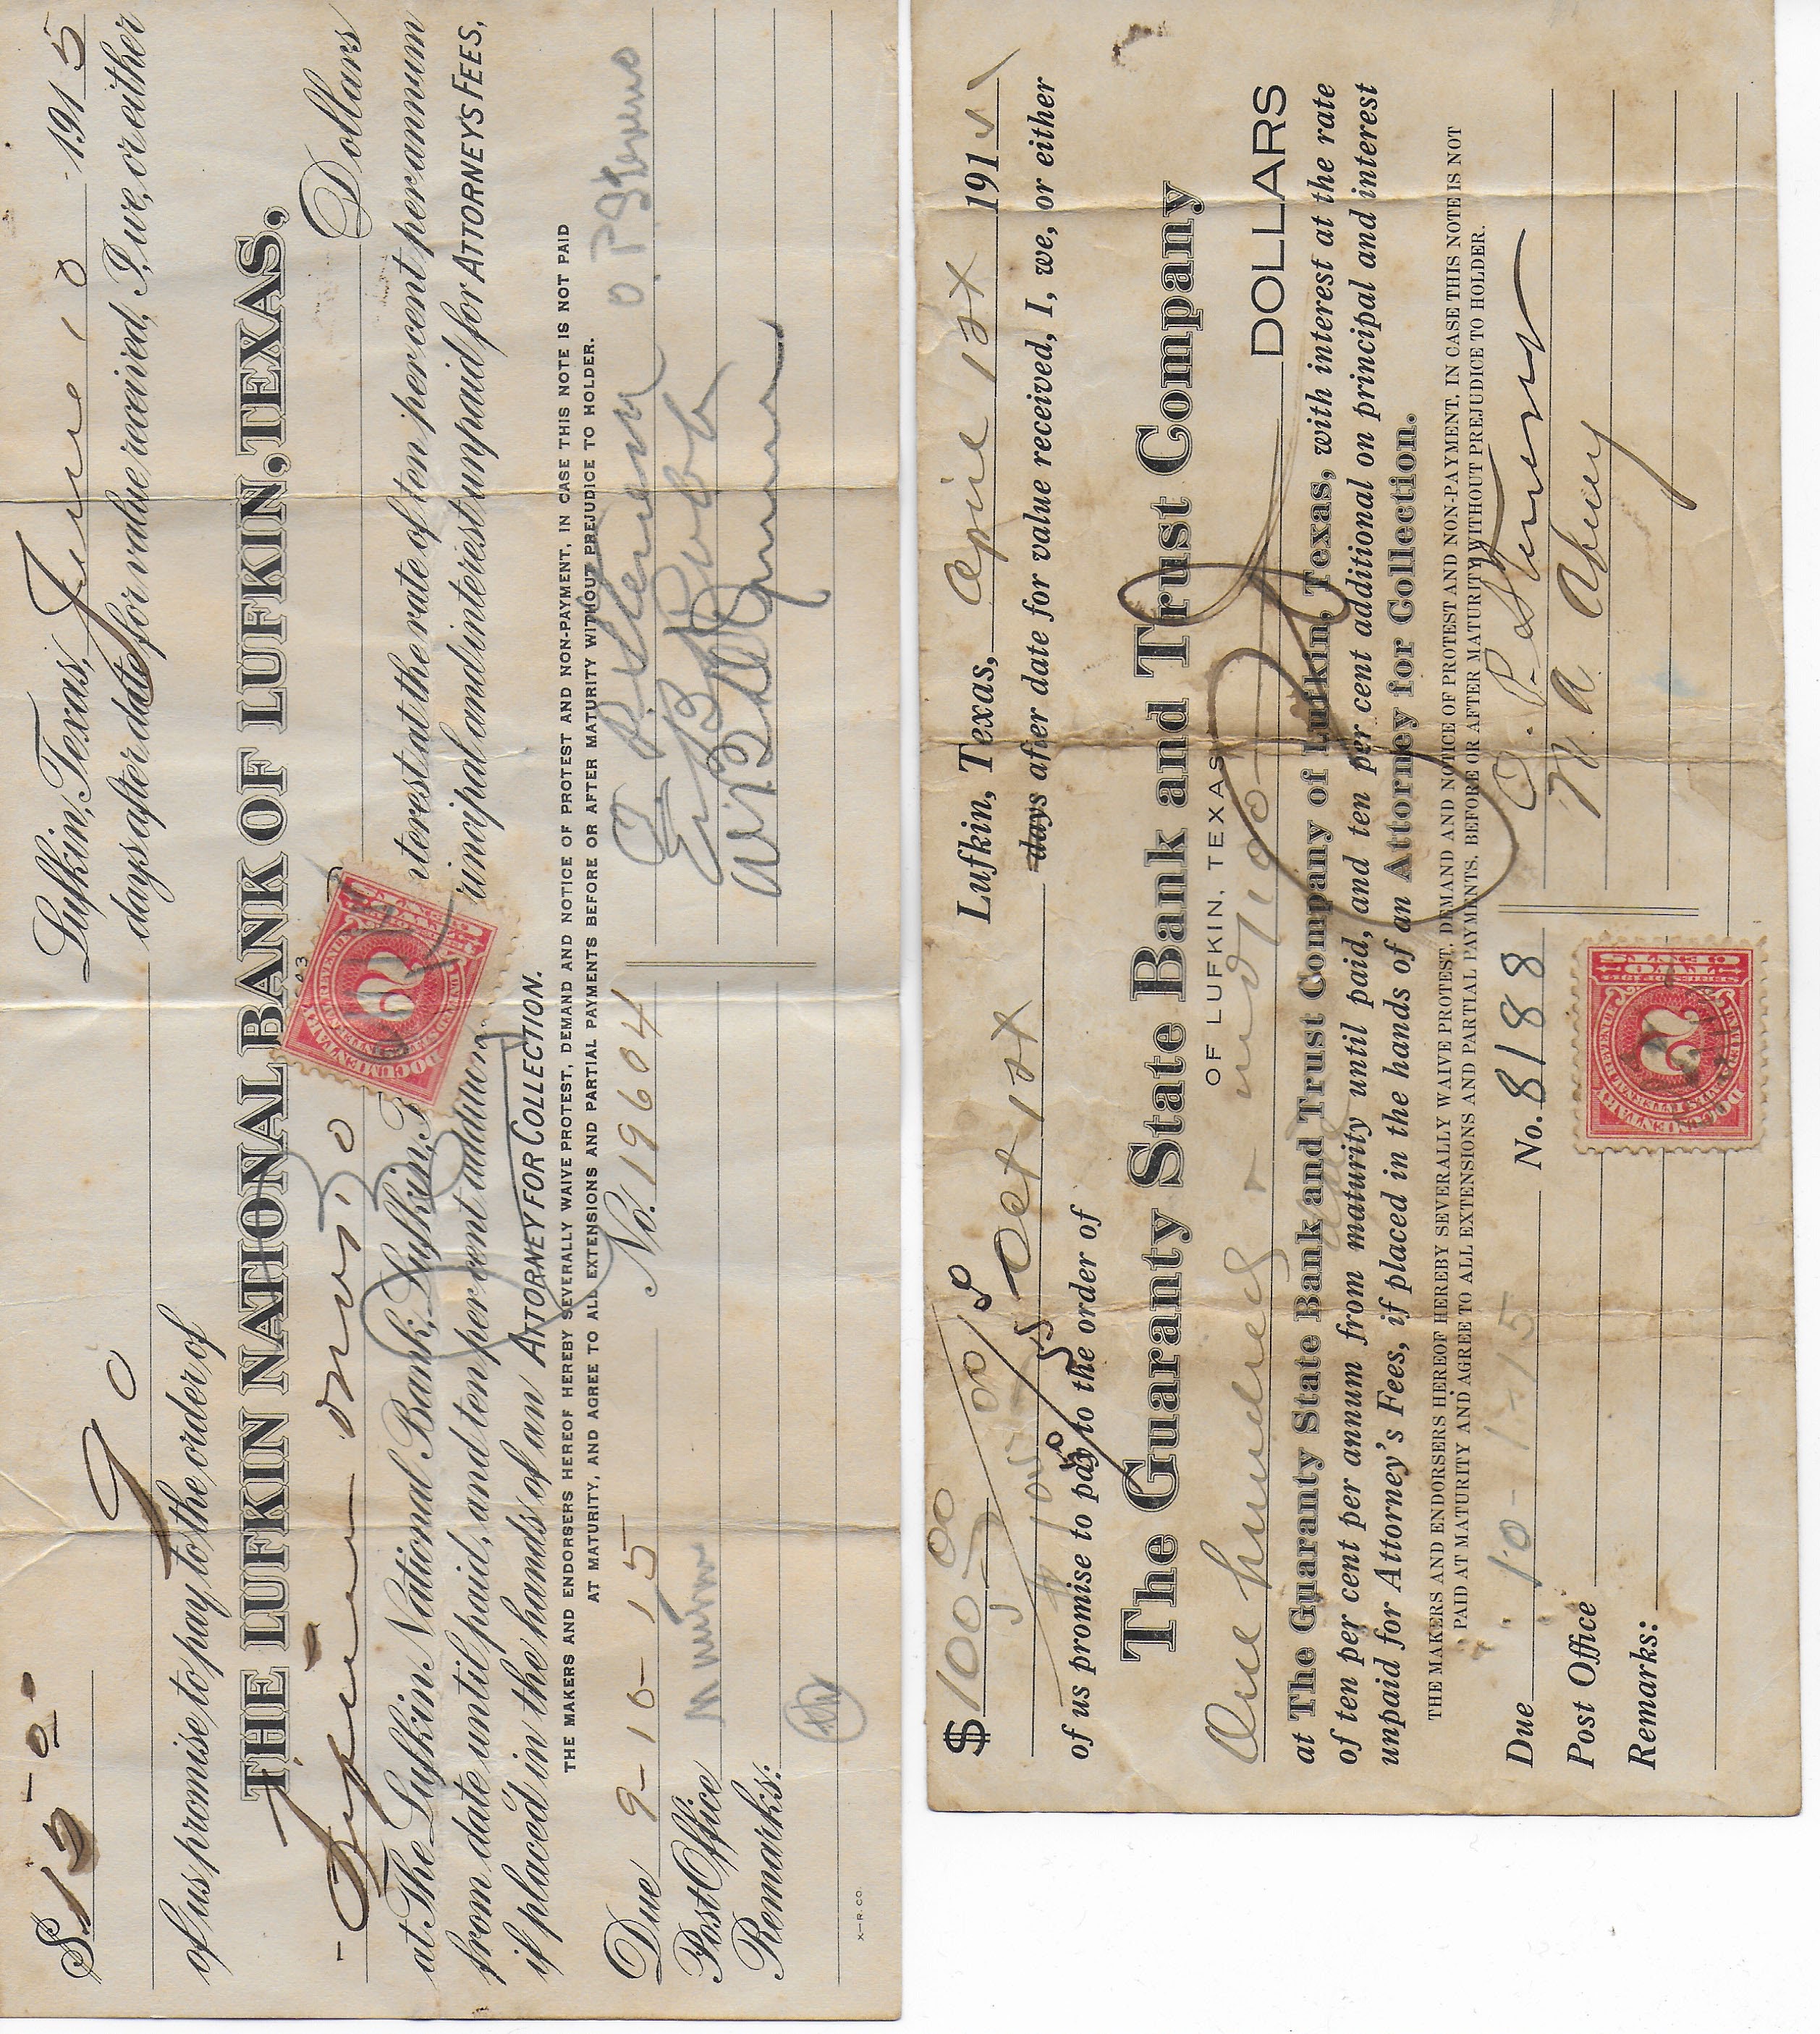 Lufkin, Texas, June 10 1915
days after date for value received, I, we, or either
of us promise to pay to the order of
THE LUFKIN NATIONAL BANK OF LUFKIN, TEXAS,
Dollars
at The Lufkin National Bank, Lufkin, nterest at the rate of ten per cent per annum
from date until paid, and ten per cent addition rincipal and interest unpaid for ATTORNEYS FEES,
if placed in the hands of an ATTORNEY FOR COLLECTION.
THE MAKERS AND ENDORSERS HEREOF HEREBY SEVERALLY WAIVE PROTEST, DEMAND AND NOTICE OF PROTEST AND NON-PAYMENT, IN CASE THIS NOTE IS NOT PAID
AT MATURITY, AND AGREE TO ALL EXTENSIONS AND PARTIAL PAYMENTS BEFORE OR AFTER MATURITY WITHOUT PREJUDICE TO HOLDER.
Due 9-10-15 No. 19604
Post Office
Remarks:
X-R. CO.
DOCUMENTARY
2
$100.00 Lufkin, Texas, April 1st 191
Oct 1st days after date for value received, I, we, or either
of us promise to pay to the order of
The Guaranty State Bank and Trust Company
OF LUFKIN, TEXAS
One hundred & no/100 DOLLARS
at The Guaranty State Bank and Trust Company of Lufkin, Texas, with interest at the rate
of ten per cent per annum from maturity until paid, and ten per cent additional on principal and interest
unpaid for Attorney's Fees, if placed in the hands of an Attorney for Collection.
THE MAKERS AND ENDORSERS HEREOF HEREBY SEVERALLY WAIVE PROTEST, DEMAND AND NOTICE OF PROTEST AND NON-PAYMENT, IN CASE THIS NOTE IS NOT
PAID AT MATURITY AND AGREE TO ALL EXTENSIONS AND PARTIAL PAYMENTS, BEFORE OR AFTER MATURITY WITHOUT PREJUDICE TO HOLDER.
Due 10-1-15 No. 8188
Post Office
Remarks:
DOCUMENTARY
2
TWO CENTS